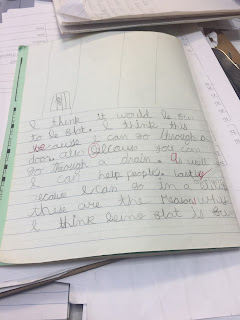 I think it would be fun
to be flat. I think this
because I can go through a
door. also Because you can
go through a drain. As well
I can help people. lastly
because I can go in a
these are the reasons why
I think being flat is fun